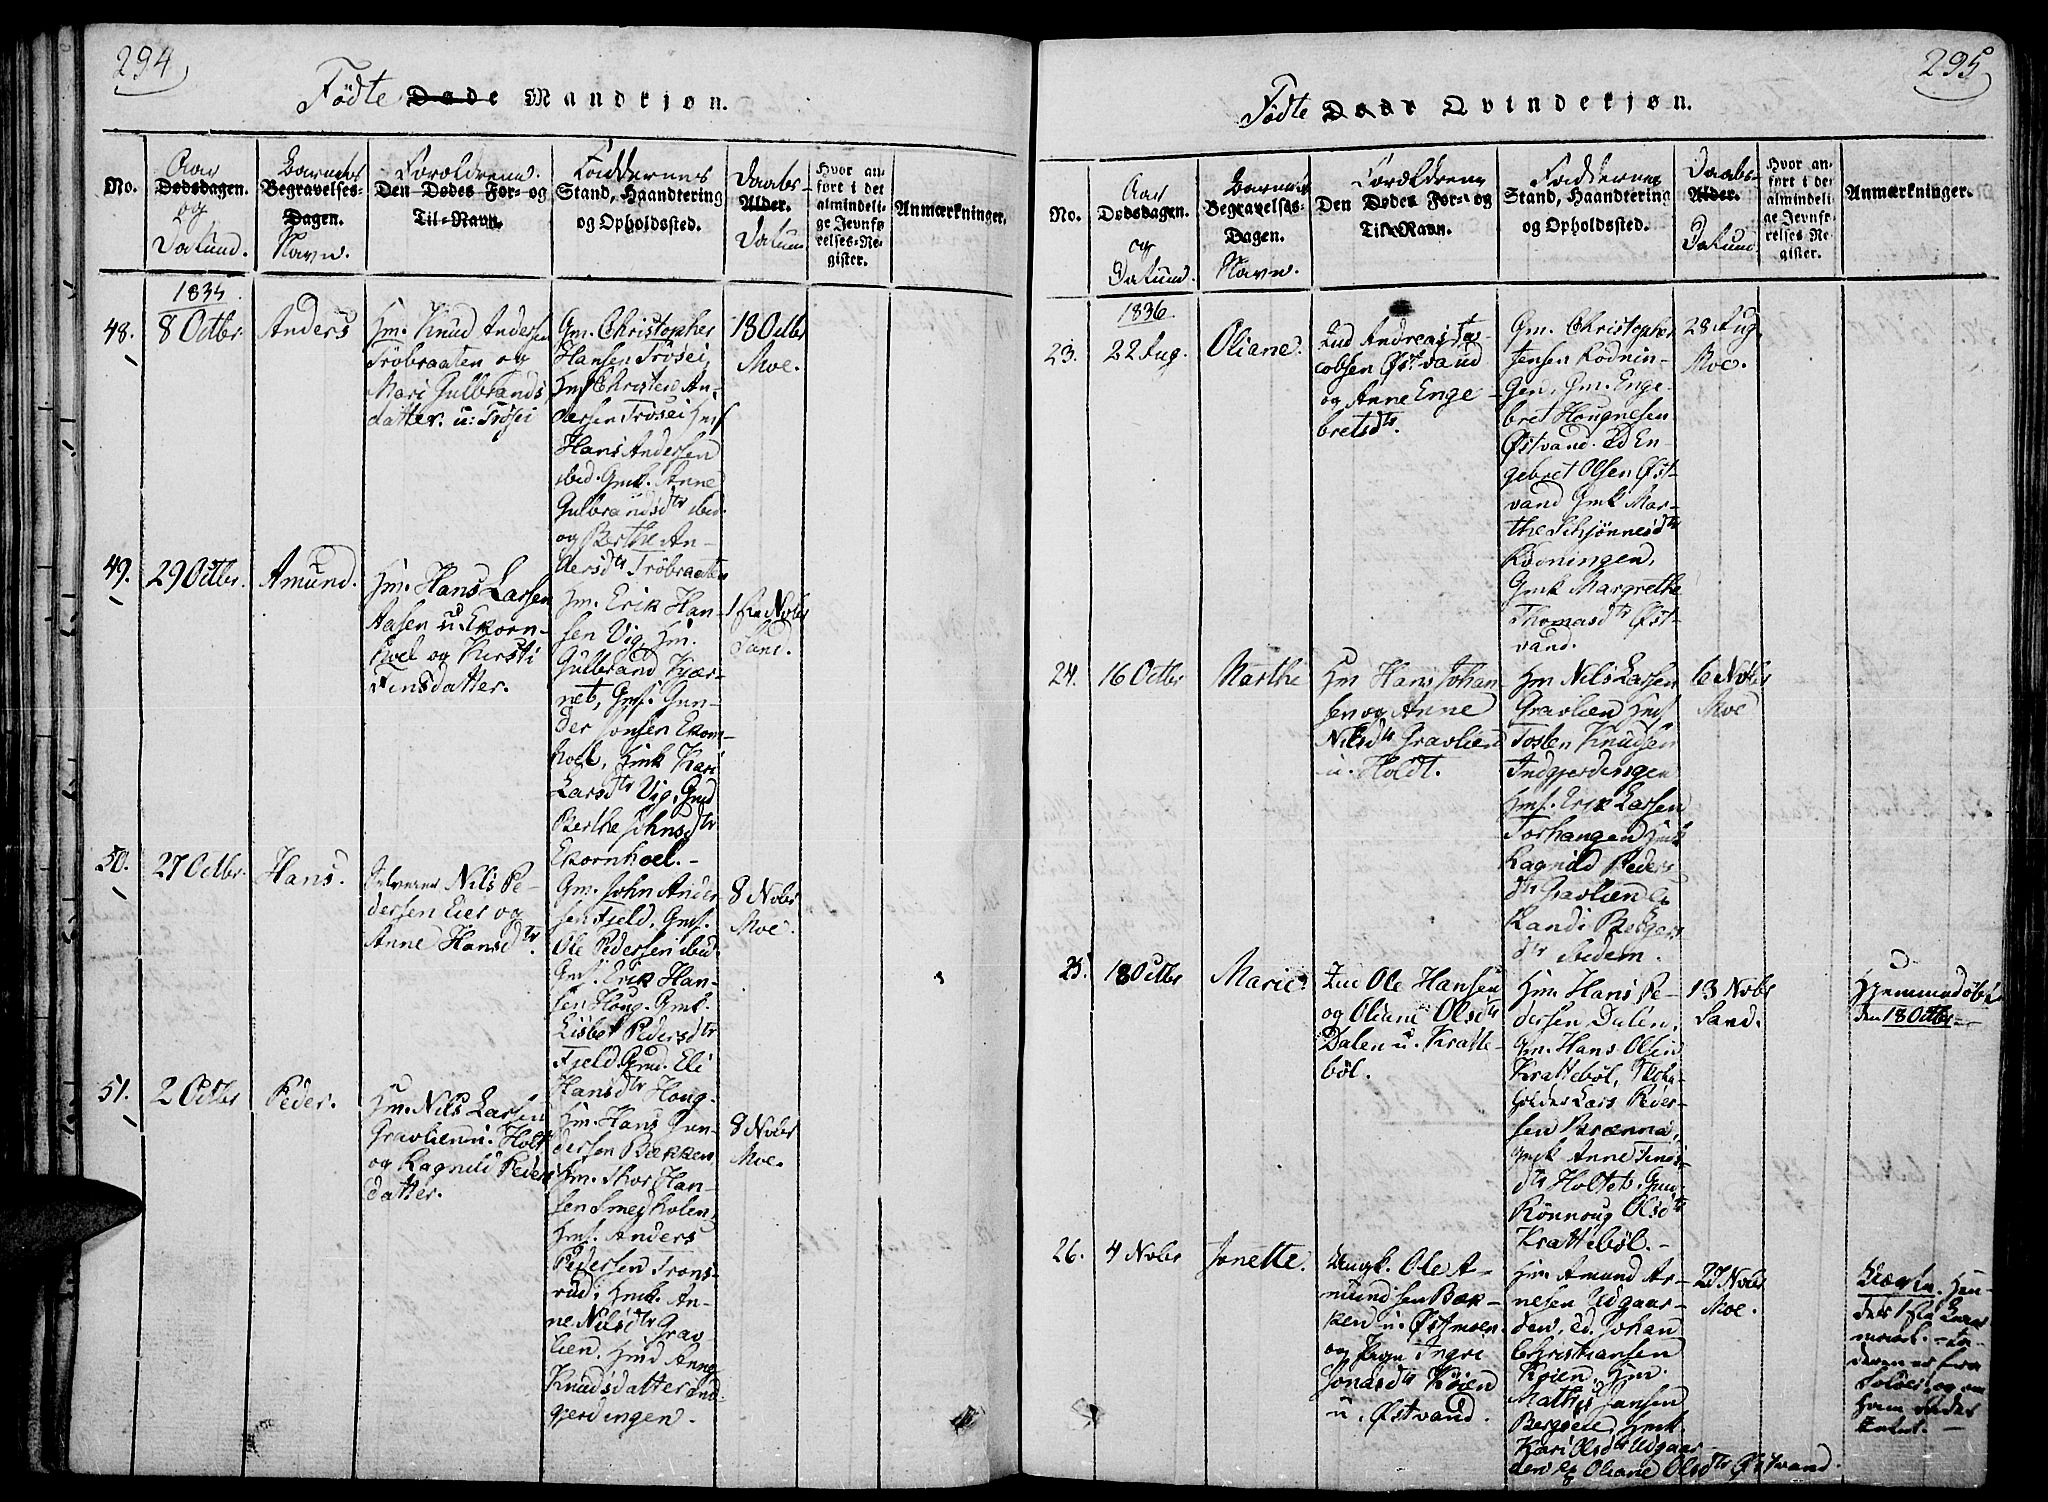 294
Födte Døde Mandkjøn.
No.
Aar
Dødsdagen.
og
Datum.
Barnets
Begravelses-
Dagen.
Navn.
Forældrene
Den Dødes For- og
Til-Navn.
Faddernes
Stand, Haandtering
og Opholdssted.
Daabs-
Alder.
Datum
Hvor an-
ført i det
almindeli-
ge Jevnfø-
relses-Re-
gister.
Anmærkninger.
1835
48.
8 Octbr
Anders
Hm. Knud Andersen
Tröbraaten og
Mari Gulbrands
datter. u: Trösei
Gm. Christopher
Hansen Trösei,
Hmf Christen An-
dersen Trösei Hmf
Hans Andersen
ibid. Gmk. Anne
Gulbrandsdtr ibid.
og Berthe An-
dersdtr Tröbraaten
18 Octbr
Moe.
49.
29 Octbr.
Amund.
Hm. Hans Larsen
Aasen u. Ekorn-
hoel og Kirsti
Finsdatter.
Hm. Erik Han-
sen Vig, Hm.
Gulbrand Kjær-
net, Gmf. Gun-
der Jonsen Ekorn-
hoel, Hmk Kari
Larsdtr Vig, Gmd
Berthe Johnsdtr
Ekornhoel.-
1ste Novbr
Sand.
50.
27 Octbr.
Hans.
Selveier Nils Pe-
dersen Eier og
Anne Hansdtr.
Gm. John Ander
sen Fjeld, Gmf.
Ole Pedersen ibid.
Gmf. Erik Han-
sen Houg. Gmk.
Lisbet Pedersdtr
Fjeld. Gmd. Eli
Hansdtr Houg.
8 Novbr
Moe.
51.
2 Octbr
Peder.
Hm. Nils Larsen
Gravlien u. Holt
og Ragnild Peders
datter.
Hm. Hans Gun-
dersen Bakken,
Hm. Thor Han-
sen Smedholen,
Hmf. Anders
Pedersen Trons-
rud, Hmk. An-
ne Nilsdtr Grav
lien. Hmd Anne
Knudsdatter Ind-
gjerdingen.
8 Novbr
Moe.
295
Födte Døde Qvindekjøn.
No.
Aar
Dødsdagen.
og
Datum.
Barnets
Begravelses-
Dagen.
Navn.
Forældrene
Den Dødes For- og
Til-Navn.
Faddernes
Stand, Haandtering
og Opholdssted.
Daabs-
Alder.
Datum
Hvor an-
ført i det
almindeli-
ge Jevnfø-
relses-Re-
gister.
Anmærkninger.
1836
23.
22 Aug.
Oliane.
Ind Andreas Ja-
cobsen Østvand
og Anne Enge-
bretsdtr.
Gm. Christopher
Jensen Rödnin-
gen, Gm. Enge-
bret Hougnesen
Østvand. Ed En-
gebret Olsen Øst-
vand Gmk Mar-
the Schjönnesdtr
Rödningen,
Gmk Margrethe
Thomasdtr Øst-
vand.
28 Aug.
Moe.
24.
16 Octbr
Marthe
Hm Hans Johan-
sen og Anne
Nilsdtr Gravlien
u. Holdt.
Hm Nils Larsen
Gravlien Hmf
Tosten Knudsen
Indgjerdingen
Hmf. Erik Larsen
Torhangen Hmk
Ragnild Peders
dtr Gravlien og
Randi Berger
dtr Stedem.
6 Novbr
Moe
25.
18 Octbr
Marie.
Ind Ole Hansen
og Oliane Olsdtr
Dalen u. Kratte-
böl.
Hm. Hans Pe-
dersen Dalen,
Gm. Hans Olsen
Kratteböl, Skole-
holder Lars Peder-
sen Brænna,
Gmk Anne Fins-
dtr Holtet, Gmd
Rönnoug Olsdtr
Kratteböl.-
13 Novbr
Sand.
Hjemmedöbt
den 18 Octbr
26.
4 Novbr
Jonette.
Ungk. Ole A-
mundsen Bak-
ken u. Østmoen
og Pige Ingri
Jonasdtr Koien
u. Østvand.
Hm. Amund Ar-
nesen Udgaar-
den, Ed. Johan
Christiansen
Koien, Hm.
Mathis Jansen
Bergseie, Hmk
Kari Olsdtr Udgaar-
den og Oliane Olsdtr Østvand.
27 Novbr
Moe.
Uægte. Hen-
des 1ste Leier-
maal.